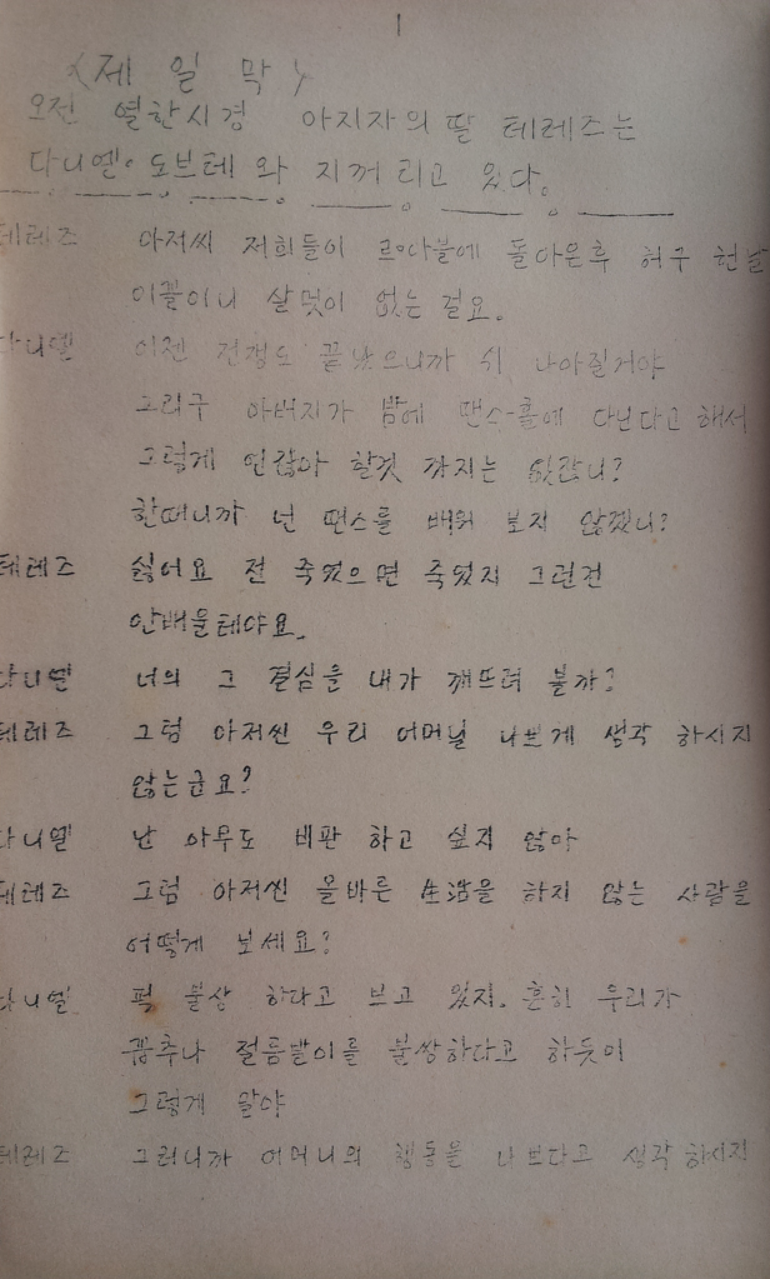 1
<제 일 막>
오전 열한시경 아지자의 딸 테레즈는
다니엘·도브테 와 지꺼리고 있다.
테레즈 아저씨 저희들이 르·아불에 돌아온후 허구 헌날
이꼴이니 살멋이 없는 걸요.
다니엘 이젠 전쟁도 끝났으니까 쉬 나아질거야
그리구 아버지가 밤에 땐스·홀에 다닌다고 해서
그렇게 언잖아 할것 까지는 않잖니?
한떠니까 넌 땐스를 배워 보지 않겠니?
테레즈 싫어요 전 죽었으면 죽었지 그런건
안배울테야요.
다니엘 너의 그 결심을 내가 깨뜨려 볼까?
테레즈 그럼 아저씬 우리 어머닐 나쁘게 생각 하시지
않는군요?
다니엘 난 아무도 비판 하고 싶지 않아
테레즈 그럼 아저씬 올바른 生活을 하지 않는 사람을
어떻게 보세요?
다니엘 퍽 불상 하다고 보고 있지. 흔히 우리가
꼽추나 절름발이를 불쌍하다고 하듯이
그렇게 말야
테레즈 그러니까 어머니의 행동을 나쁘다고 생각 하시지